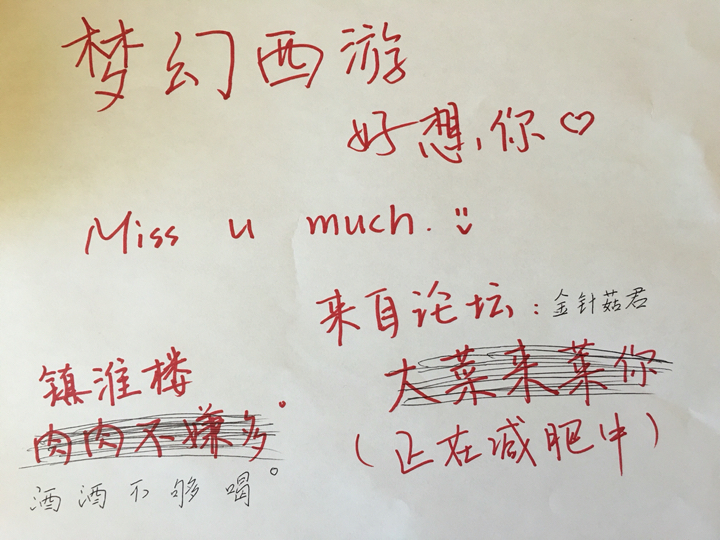 梦幻西游
好想你♡
Miss u much.
来自论坛：金针菇君
大菜来菜你
（正在减肥中）
镇淮楼
肉肉不嫌多。
酒酒不够喝。